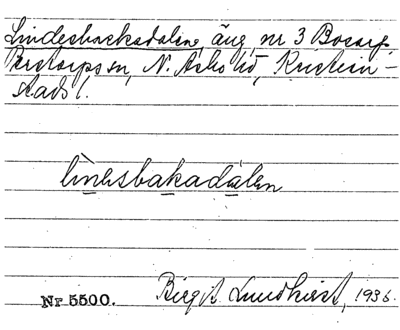 Lindesbackadalen, äng, nr 3 Bosarp
Perstorps sn, N. Åsbo hd, Kristian-
stads l.
lìnesbakadálen
Nr 5500. Birgit Lundkvist, 1936.